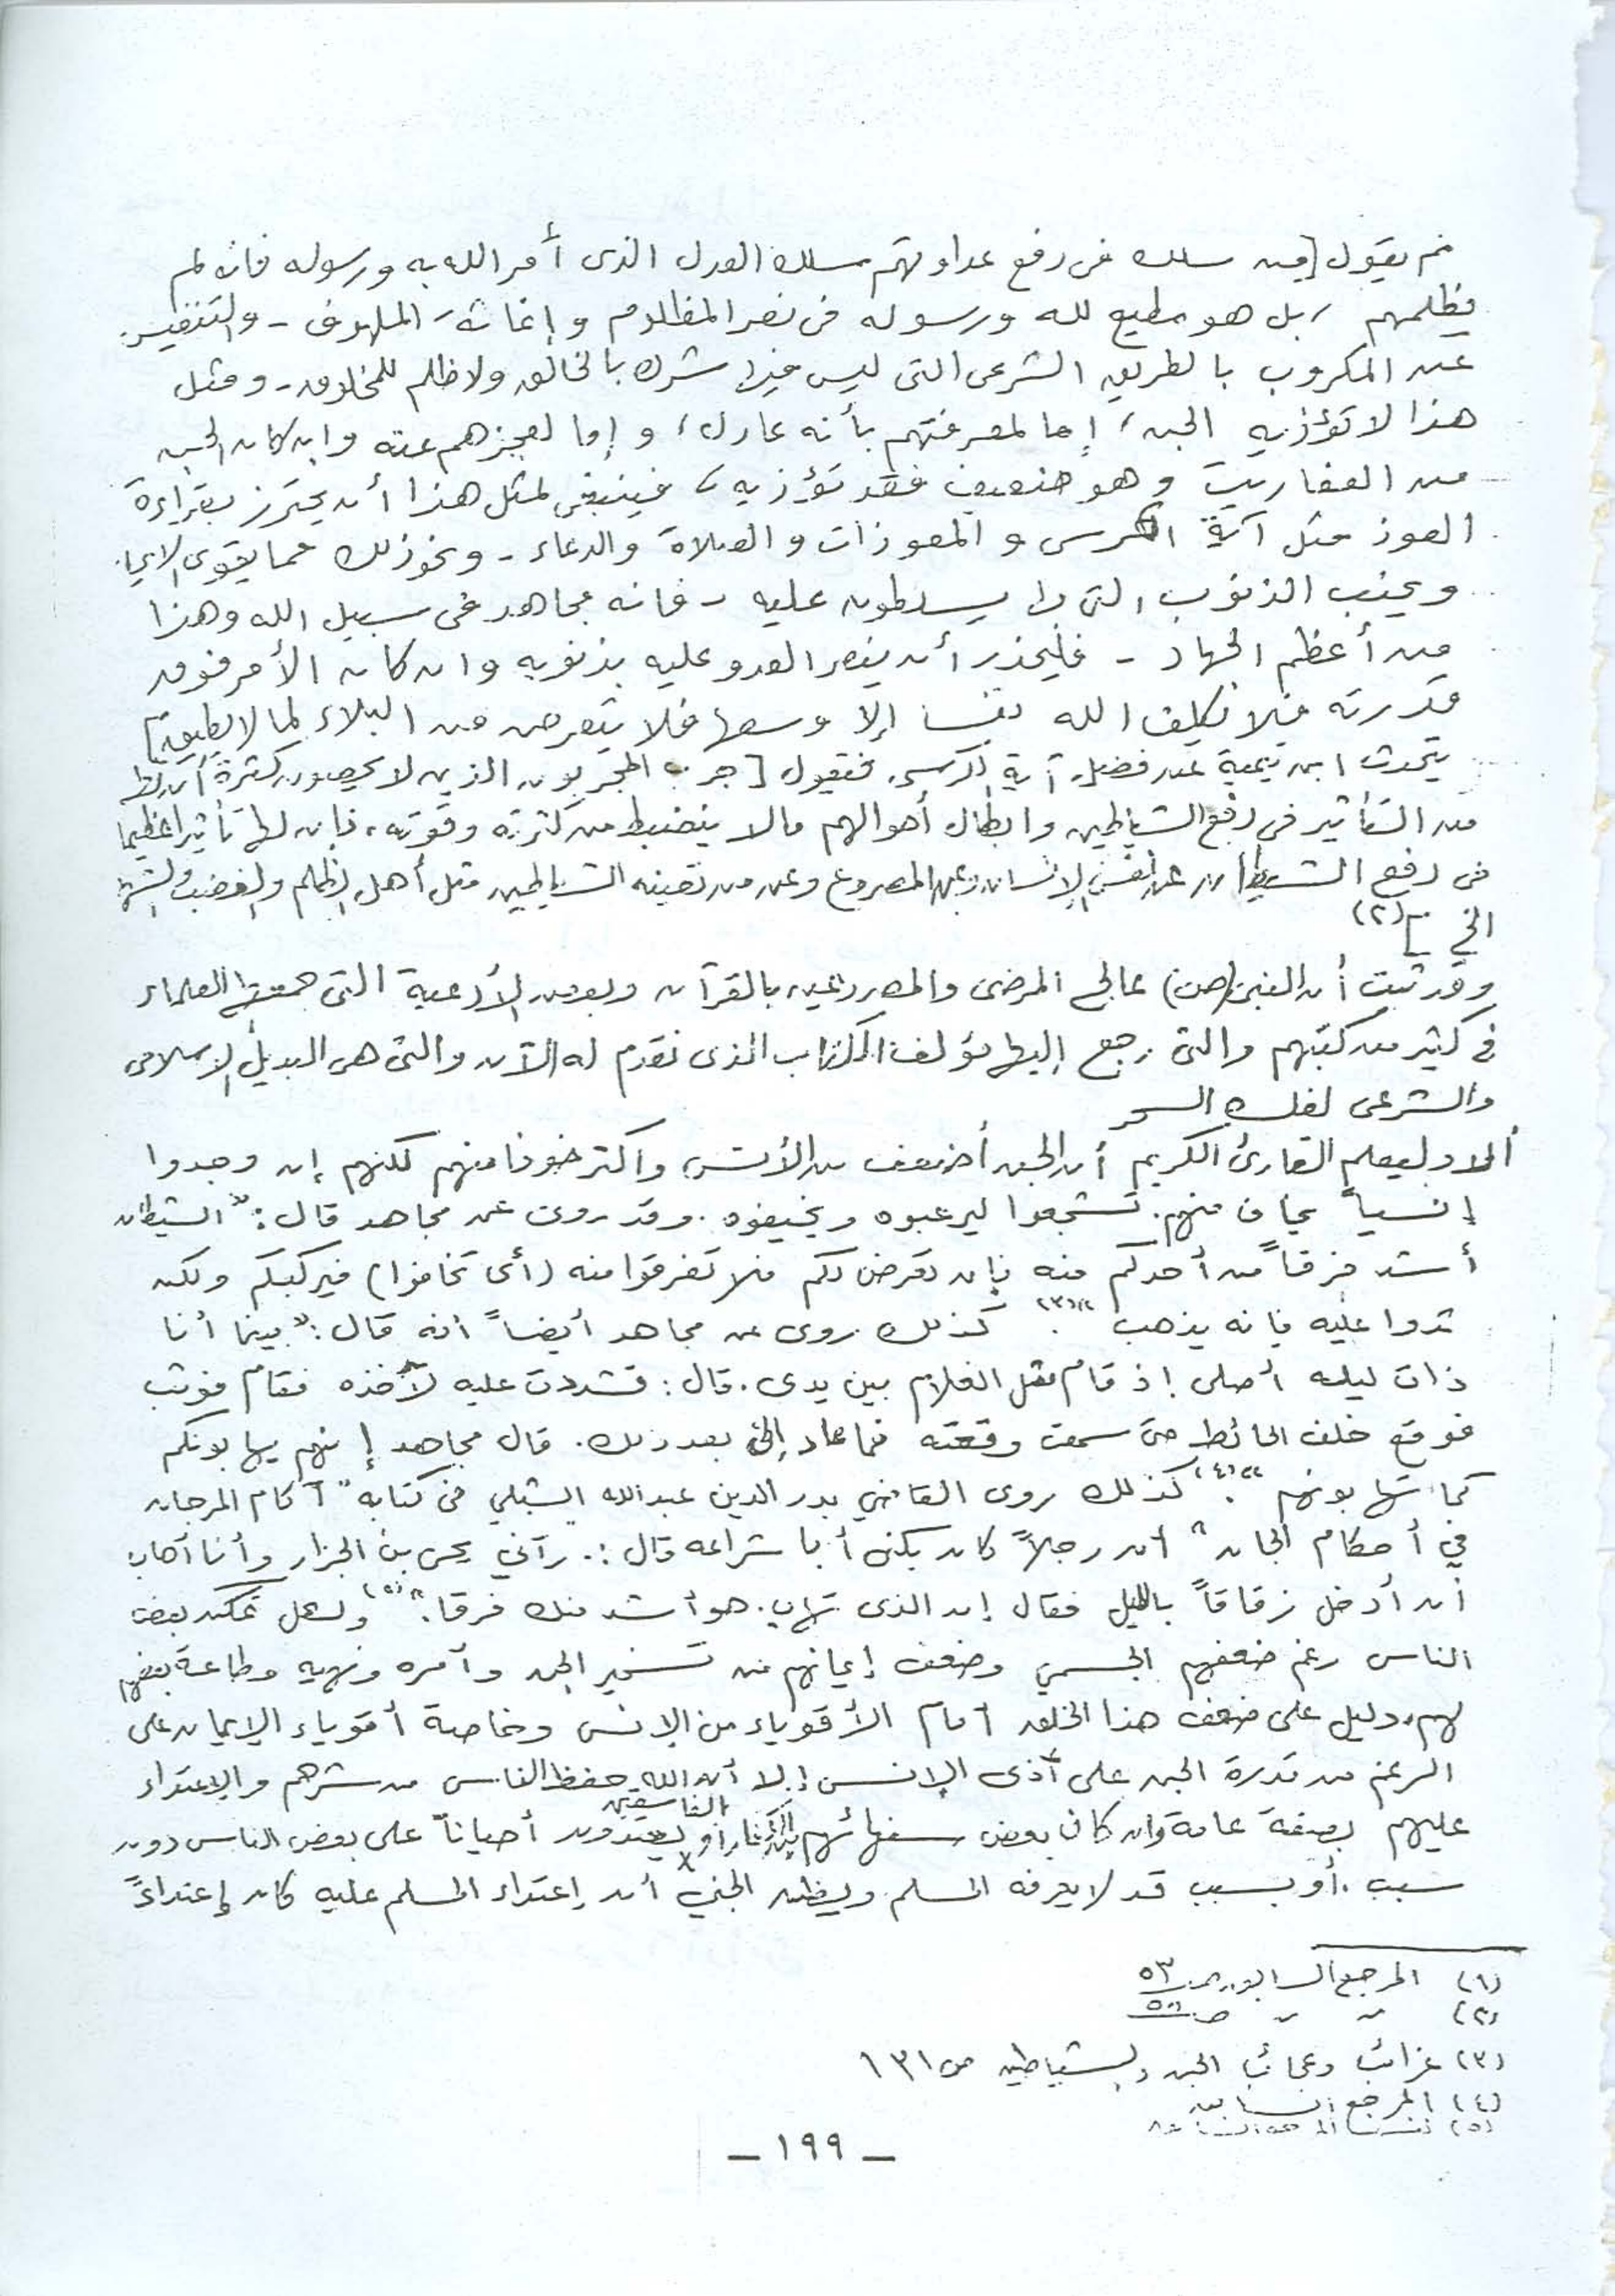 ثم يقول [ومن سلك فى دفع عداوتهم مسلك العدل الذى أمر الله به ورسوله فانه لم
يظلمهم ، بل هو مطيع لله ورسوله فى نصر المظلوم وإغاثة الملهوف - والتنفيس
عن المكروب بالطريق الشرعى التى ليس فيها شرك بالخالق ولا ظلم للمخلوق - ومثل
هذا لا تؤذيه الجن ، إما لمعرفتهم بأنه عادل ، وإما لعجزهم عنه وان كان الجن
من العفاريت وهو ضعيف فقد تؤذيه ، فينبغى لمثل هذا أن يحترز بقراءة
العوذ مثل آية الكرسى والمعوذات والصلاة والدعاء - ونحو ذلك مما يقوى الايما
ويجنب الذنوب التى بها يسلطون عليه - فانه مجاهد فى سبيل الله وهذا
من أعظم الجهاد - فليحذر أن ينصر العدو عليه بذنوبه وان كان الأمر فوق
قدرته فلا يكلف الله نفسا إلا وسعها فلا يتعرض من البلاء لما لا يطيق]
يتحدث ابن تيمية عن فضل آية الكرسى فيقول [جرب المجربون الذين لا يحصون كثرة أن لها
من التأثير فى دفع الشياطين وابطال أحوالهم مالا ينضبط من كثرته وقوته ، فإن لها تأثيرا عظيما
فى دفع الشيطان عن نفس الإنسان وعن المصروع وعن من تعينه الشياطين مثل أهل الظلم والغضب
الخ ..](٢)
وقد ثبت أن النبى (ص) عالج المرضى والمصروعين بالقرآن وبعض الأدعية التى جمعها العلماء
فى كثير من كتبهم والتى رجع إليها مؤلف الكتاب الذى نقدم له الآن والتى هى البديل الاسلامى
والشرعى لفك السحر
ألا وليعلم القارئ الكريم أن الجن أضعف من الأنس وأكثر خوفا منهم لكنهم إن وجدوا
إنسياً يخاف منهم تشجعوا ليرعبوه ويخيفوه . وقد روى عن مجاهد قال : " الشيطان
أشد فرقاً من أحدكم منه فإن تعرض لكم فلا تفرقوا منه (أى تخافوا) فيركبكم ولكن
شدوا عليه فإنه يذهب "(٣). كذلك روى عن مجاهد أيضاً أنه قال : " بينما أنا
ذات ليله أصلى إذ قام مثل الغلام بين يدى . قال : فشددت عليه لآخذه فقام فوثب
فوقع خلف الحائط حتى سمعت وقعته فما عاد إلىّ بعد ذلك . قال مجاهد إنهم يهابونكم
كما تهابونهم "(٤). كذلك روى القاضي بدر الدين عبدالله الشبلي فى كتابه " آكام المرجان
في أحكام الجان " أن رجلاً كان يكنى أبا شراعه قال : . رآني يحى بن الجزار وأنا أهاب
أن أدخل زقاقاً بالليل فقال إن الذى تهاب هو أشد منك فرقا . "(٥) ولعل تمكن بعض
الناس رغم ضعفهم الجسمي وضعف إيمانهم من تسخير الجن وأمره ونهيه وطاعة بعضهم
لهم ، دليل على ضعف هذا الخلق أمام الأقوياء من الإنس وخاصة أقوياء الإيمان على
الرغم من قدرة الجن على أذى الإنس إلا أن الله حفظ الناس من شرهم والاعتداء
عليهم بصفة عامة وان كان بعض سفهائهم الكفار أو الفاسقين يعتدون أحياناً على بعض الناس دون
سبب . أو بسبب قد لا يعرفه المسلم ويظن الجني أن إعتداء المسلم عليه كان إعتداءً
(١) المرجع السابق ص ٥٣
(٢) " " ص
(٣) غرائب وعجائب الجن والشياطين ص ١٣١
(٤) المرجع السابق
(٥)
- ١٩٩ -